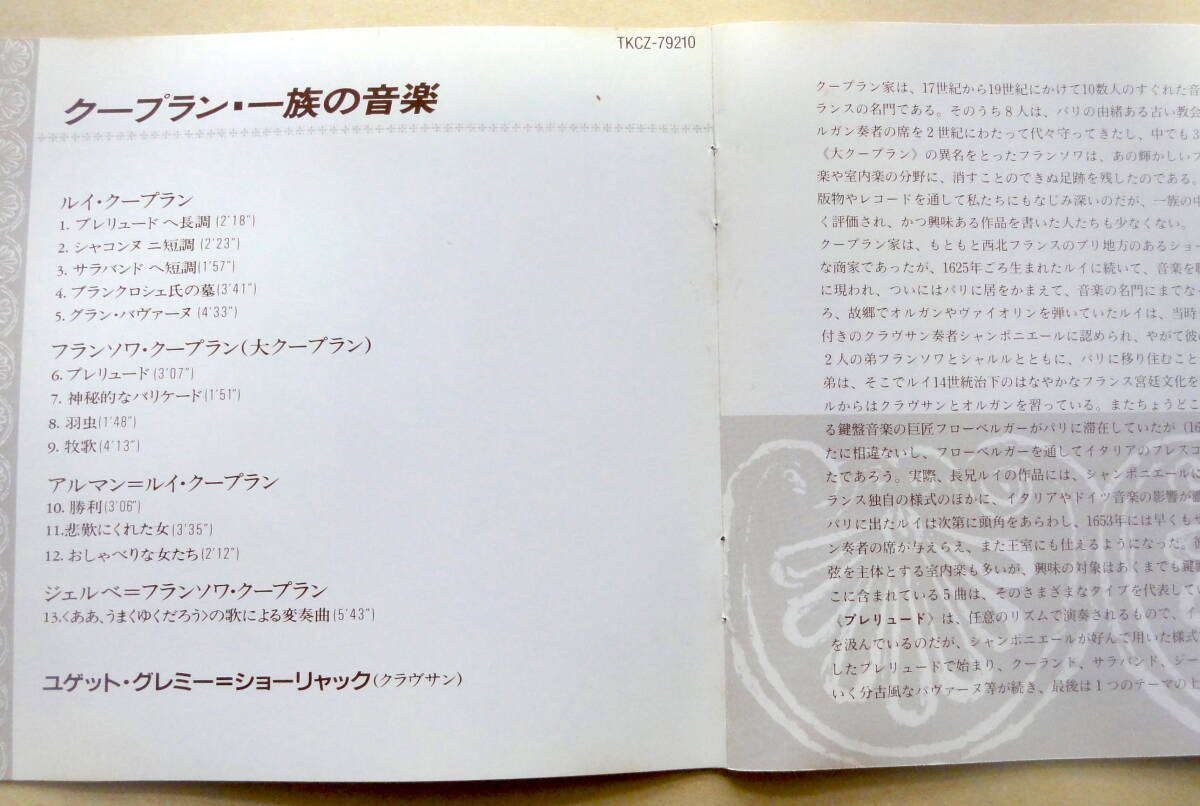 TKCZ-79210
クープラン・一族の音楽
ルイ・クープラン
1. プレリュード ヘ長調 (2'18")
2. シャコンヌ ニ短調 (2'23")
3. サラバンド ヘ短調 (1'57")
4. ブランクロシェ氏の墓 (3'41")
5. グラン・パヴァーヌ (4'33")
フランソワ・クープラン(大クープラン)
6. プレリュード (3'07")
7. 神秘的なバリケード (1'51")
8. 羽虫 (1'48")
9. 牧歌 (4'13")
アルマン=ルイ・クープラン
10. 勝利 (3'06")
11. 悲歎にくれた女 (3'35")
12. おしゃべりな女たち (2'12")
ジェルベ=フランソワ・クープラン
13.〈ああ、うまくゆくだろう〉の歌による変奏曲 (5'43")
ユゲット・グレミー=ショーリャック (クラヴサン)
クープラン家は、17世紀から19世紀にかけて10数人のすぐれた音
ランスの名門である。そのうち8人は、パリの由緒ある古い教会
ルガン奏者の席を2世紀にわたって代々守ってきたし、中でも3
《大クープラン》の異名をとったフランソワは、あの輝かしいフ
楽や室内楽の分野に、消すことのできぬ足跡を残したのである。
版物やレコードを通して私たちにもなじみ深いのだが、一族の中
く評価され、かつ興味ある作品を書いた人たちも少なくない。
クープラン家は、もともと西北フランスのブリ地方のあるショー
な商家であったが、1625年ごろ生まれたルイに続いて、音楽を職
に現われ、ついにはパリに居をかまえて、音楽の名門にまでな
ろ、故郷でオルガンやヴァイオリンを弾いていたルイは、当時
付きのクラヴサン奏者シャンボニエールに認められ、やがて彼の
2人の弟フランソワとシャルルとともに、パリに移り住むこと
弟は、そこでルイ14世統治下のはなやかなフランス宮廷文化を
ルからはクラヴサンとオルガンを習っている。またちょうどこ
る鍵盤音楽の巨匠フローベルガーがパリに滞在していたが (16
たに相違ないし、フローベルガーを通してイタリアのフレスコ
たであろう。実際、長兄ルイの作品には、シャンボニエールに
ランス独自の様式のほかに、イタリアやドイツ音楽の影響が
パリに出たルイは次第に頭角をあらわし、1653年には早くもサ
ン奏者の席が与えらえ、また王室にも仕えるようになった。彼
弦を主体とする室内楽も多いが、興味の対象はあくまでも鍵盤
こに含まれている5曲は、そのさまざまなタイプを代表してい
《プレリュード》は、任意のリズムで演奏されるもので、イ
を汲んでいるのだが、シャンボニエールが好んで用いた様式
したプレリュードで始まり、クーランド、サラバンド、ジー
いく分古風なパヴァーヌ等が続き、最後は1つのテーマの上